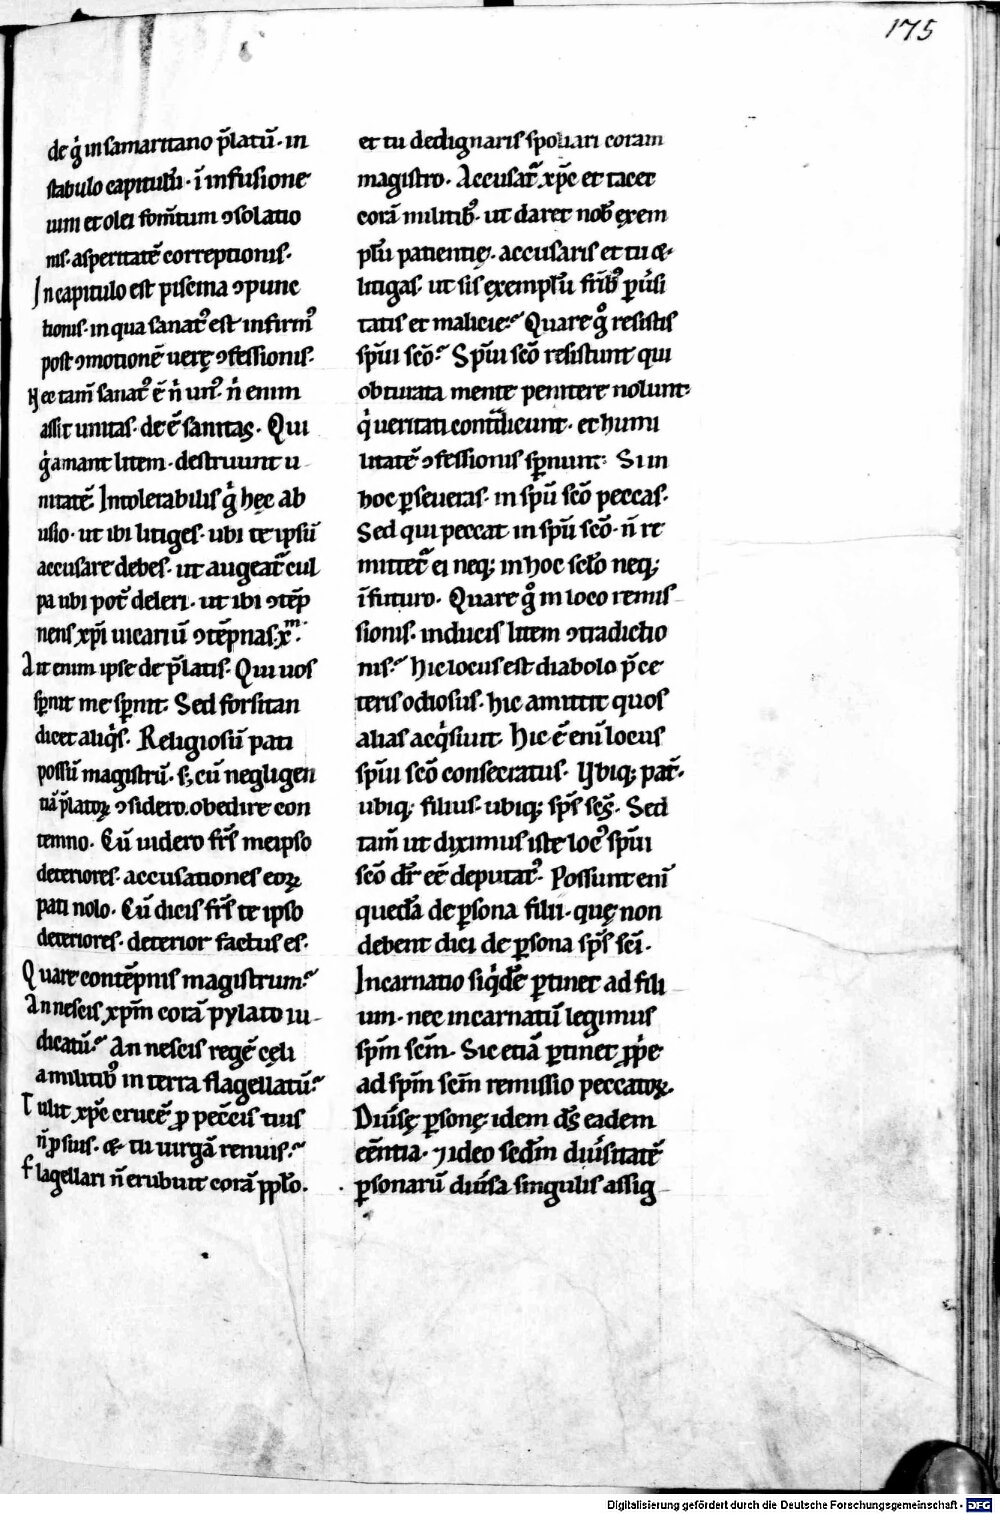 175
de gͥ in samaritano p̄latū· in
stabulo capitulū· ī infusione
uini et olei fom̄tum ꝯsolatio
nis· asperitatē correptionis·
In capitulo est piscina ꝯpunc
tionis· in qua sanatᵘ est infirmᵘ
post ꝯmotionē uerę ꝯfessionis·
Nec tam̄ sanatᵘ ē n̄ unᵘ· n̄ enim
assit unitas· de ē sanitas· Qui
gͥ amant litem· destruunt u
nitatē. Intolerabilis gͥ hęc ab
usio· ut ibi litiges· ubi te ipsū
accusare debes· ut augeat̄ cul
pa ubi pot̄ deleri· ut ibi ꝯtēp
nens xp̄i uicariū ꝯtēpnas xᵐ·
Ait enim ipse de p̄latis· Qui uos
sp̄nit me sp̄nit· Sed forsitan
dicet aliqͥs· Religiosū pati
possū magistrū· s; cū negligen
tiā p̄latoꝝ ꝯsidero· obedire con
temno· Cū uidero fr̄s meipso
deteriores· accusationes eoꝝ
pati nolo· Cū dicis fr̄s te ipso
deteriores· deterior factus es·
Quare contēpnis magistrum?
An nescis xp̄m corā pylato iu
dicatū? An nescis regē cęli
a militibᵘ in terra flagellatū?
Tulit xp̄c crucē ꝓ pecc̄is tuis
n̄ ꝓ suis· & tu uirgā renuis?
Flagellari n̄ erubuit corā pp̄lo·
et tu dedignaris spoliari coram
magistro· Accusat̄ xp̄c et tacet
corā militibᵘ· ut daret nob̄ exem
plū patientię· accusaris et tu &
litigas· ut sis exemplū fr̄ibᵘ ꝑuͥsi
tatis et malicie? Quare gͦ resistis
spūi scō? Spūi scō resistunt qui
obturata mente penitere nolunt·
qͥ ueritati contradicunt· et humi
litatē ꝯfessionis sp̄nunt· Si in
hoc ꝑseueras· in spū scō peccas·
Sed qui peccat in spū scō· n̄ re
mittet̄ ei neq; in hoc sc̄lo neq;
ī futuro· Quare gͦ in loco remis
sionis· inducis litem ꝯtradictio
nis? Hic locus est diabolo p̄ ce
teris odiosus· hic amittit quos
alias acqͥsiuit· Hic ē enī locus
spūi scō consecratus· Vbiq; pat̄·
ubiq; filius· ubiq; sp̄s sc̄s· Sed
tam̄ ut diximus iste locᵘ spūi
scō dr̄ eē deputatᵘ· Possunt enī
quedā de ꝑsona filii· quę non
debent dici de ꝑsona sp̄s sc̄i·
Incarnatio siqͥdē ꝑtinet ad fili
um· nec incarnatū legimus
sp̄m sc̄m· Sic etiā ꝑtinet ꝓp̄e
ad sp̄m sc̄m remissio peccatoꝝ·
Diuͥsę ꝑsonę· idem dꝰ eadem
eēntia· ⁊ ideo sed̄m diuͥsitatē
ꝑsonarū diuͥsa singulis assig
Digitalisierung gefördert durch die Deutsche Forschungsgemeinschaft - DFG